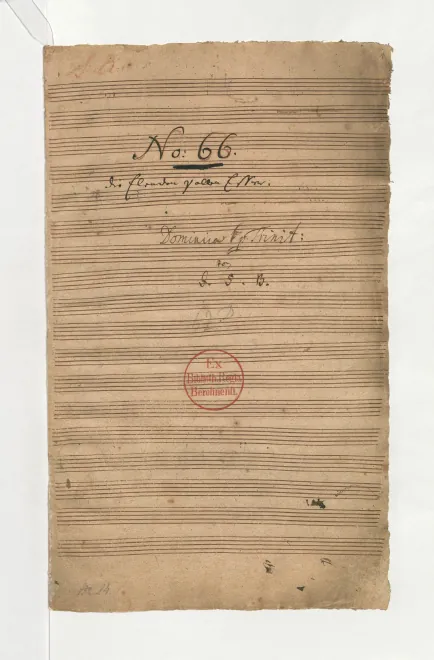 No: 66.
die Elenden sollen Essen.
Dominica Trinit:
von
J. S. B.
Ex
Biblioth. Regia
Berolinenſi.